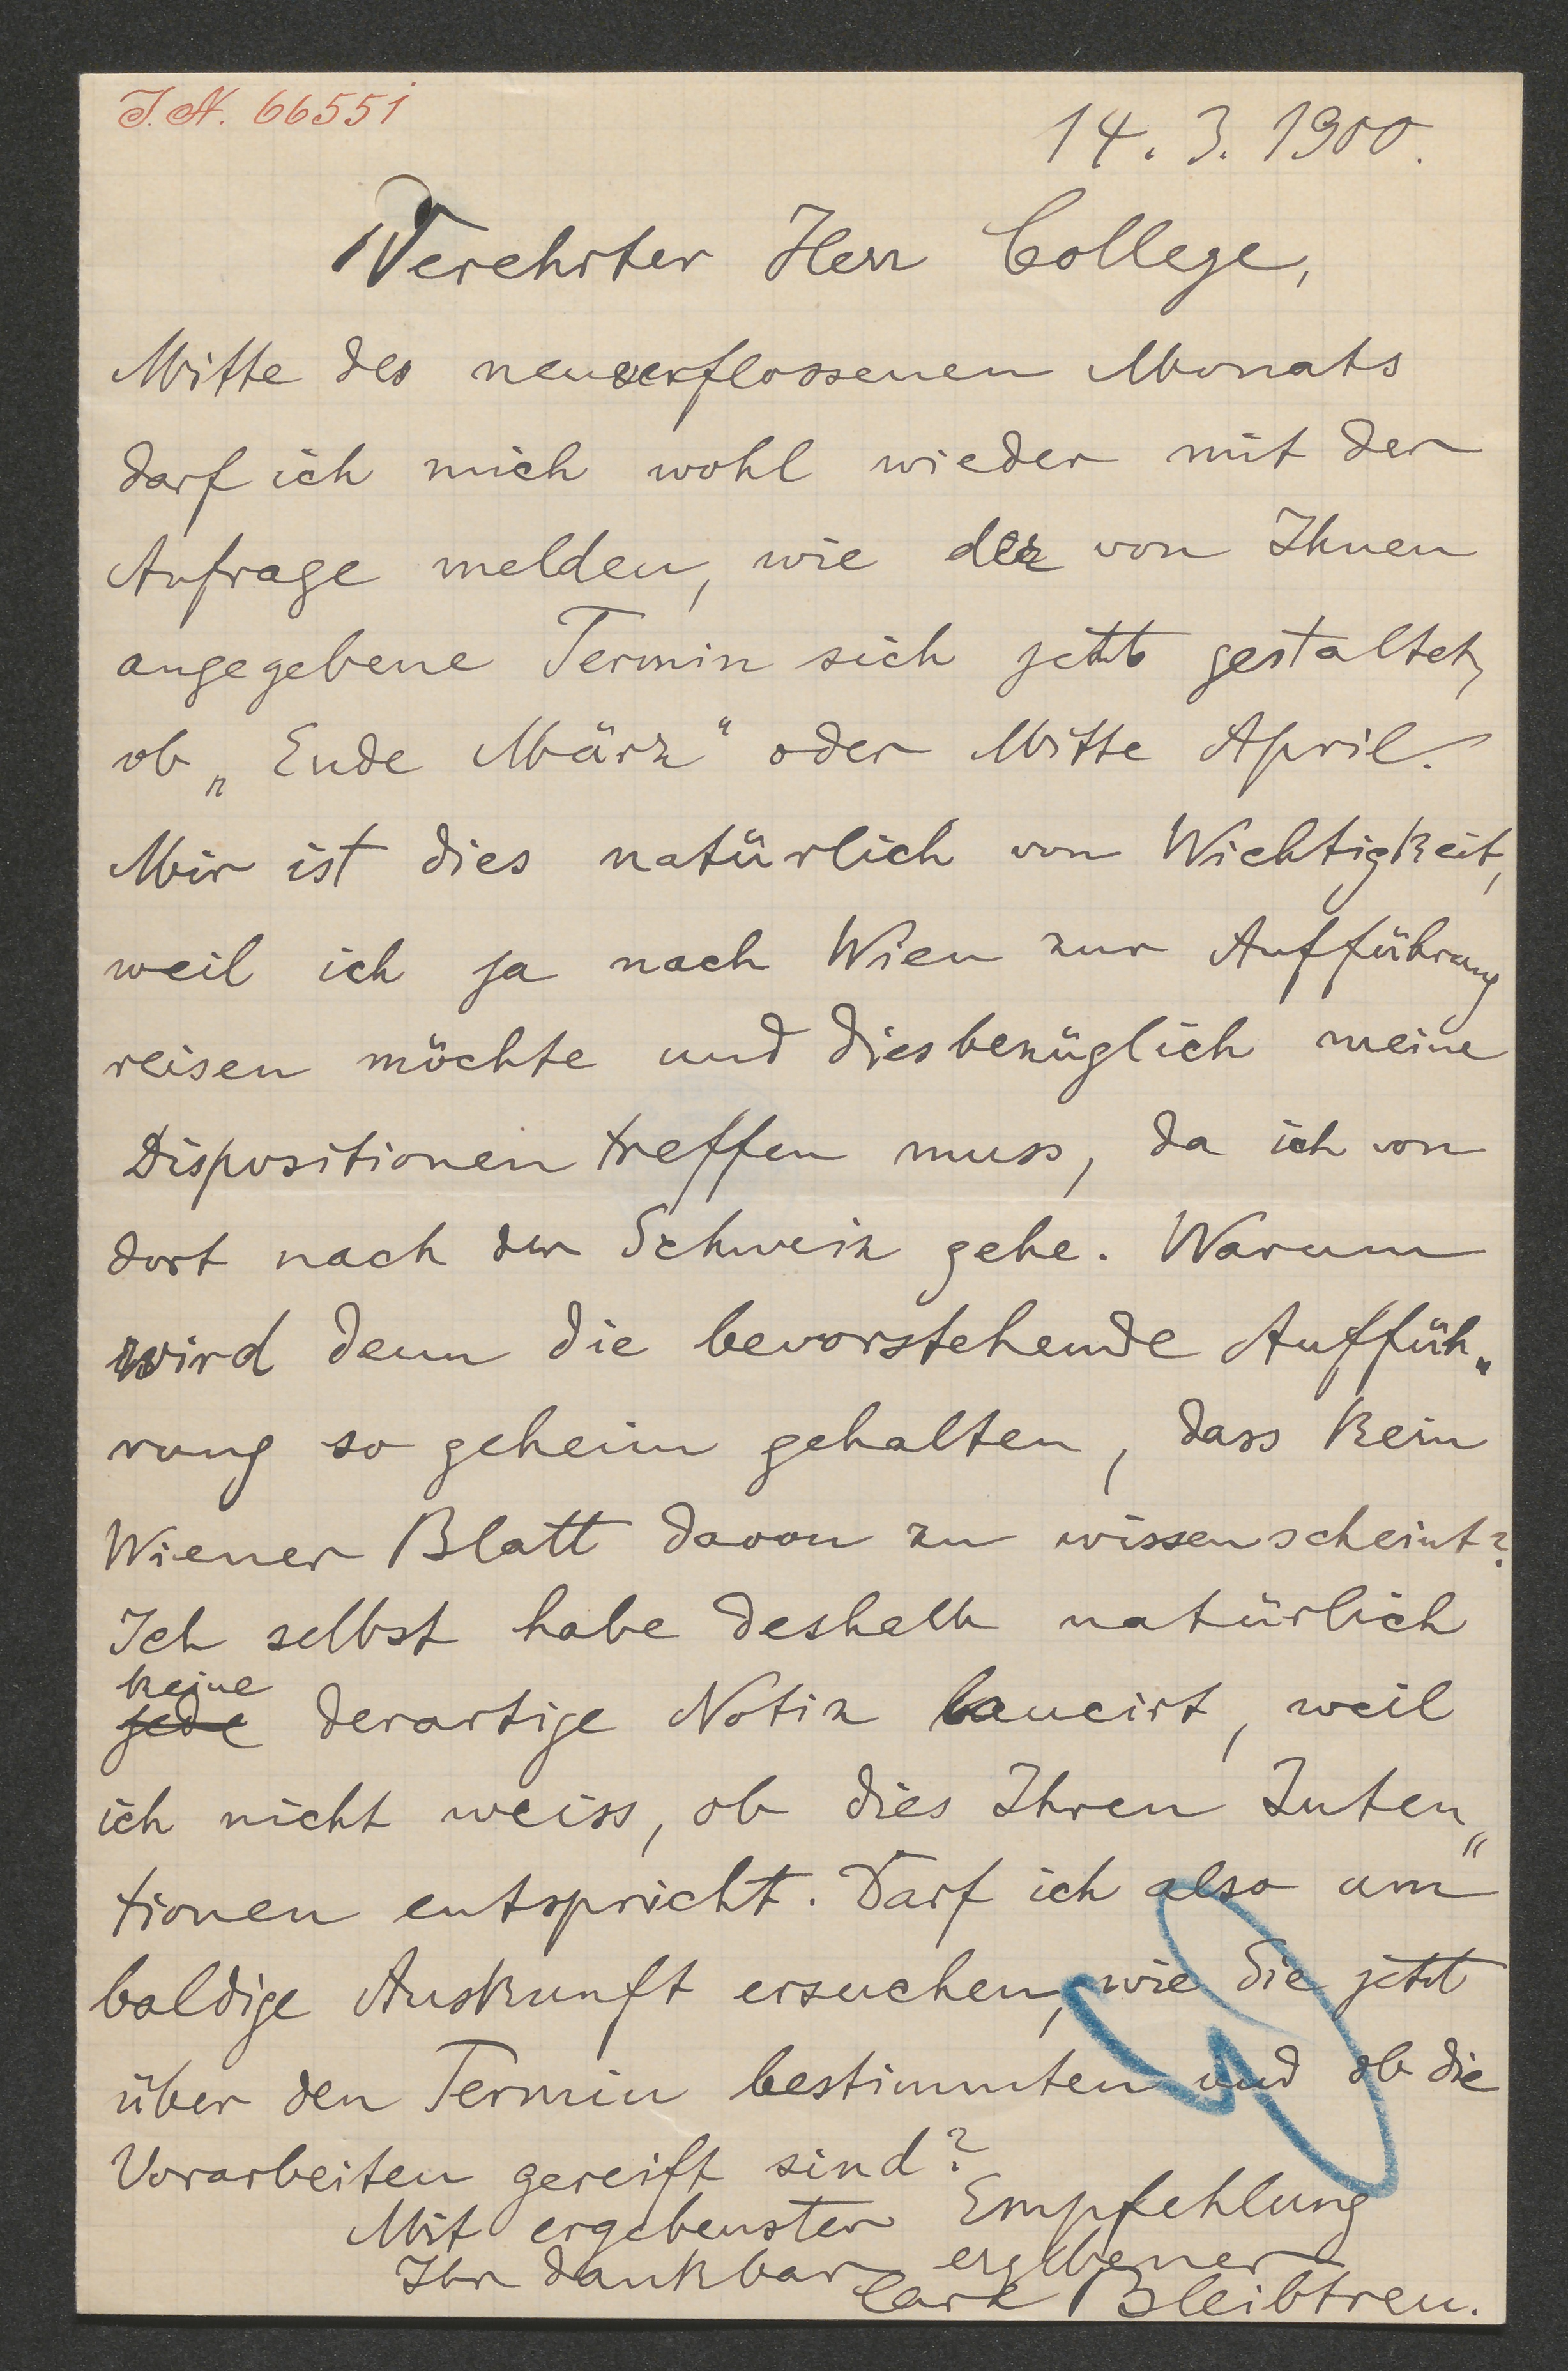 I.N. 66551
14. 3. 1900.
Verehrter Herr College,
Mitte des neuverflossenen Monats
darf ich mich wohl wieder mit der
Anfrage melden, wie der von Ihnen
angegebene Termin sich jetzt gestaltet,
ob „Ende März“ oder Mitte April.
Mir ist dies natürlich von Wichtigkeit,
weil ich ja nach Wien zur Aufführung
reisen möchte und diesbezüglich meine
Dispositionen treffen muss, da ich von
dort nach der Schweiz gehe. Warum
wird denn die bevorstehende Auffüh„
rung so geheim gehalten, dass kein
Wiener Blatt davon zu wissen scheint?
Ich selbst habe deshalb natürlich
keine
jede derartige Notiz lancirt, weil
ich nicht weiss, ob dies Ihren Inten„
tionen entspricht. Darf ich also um
baldige Auskunft ersuchen, wie Sie jetzt
über den Termin bestimmten und ob die
Vorarbeiten gereift sind?
Mit ergebenster Empfehlung
Ihr dankbar ergebener
Carl Bleibtreu.